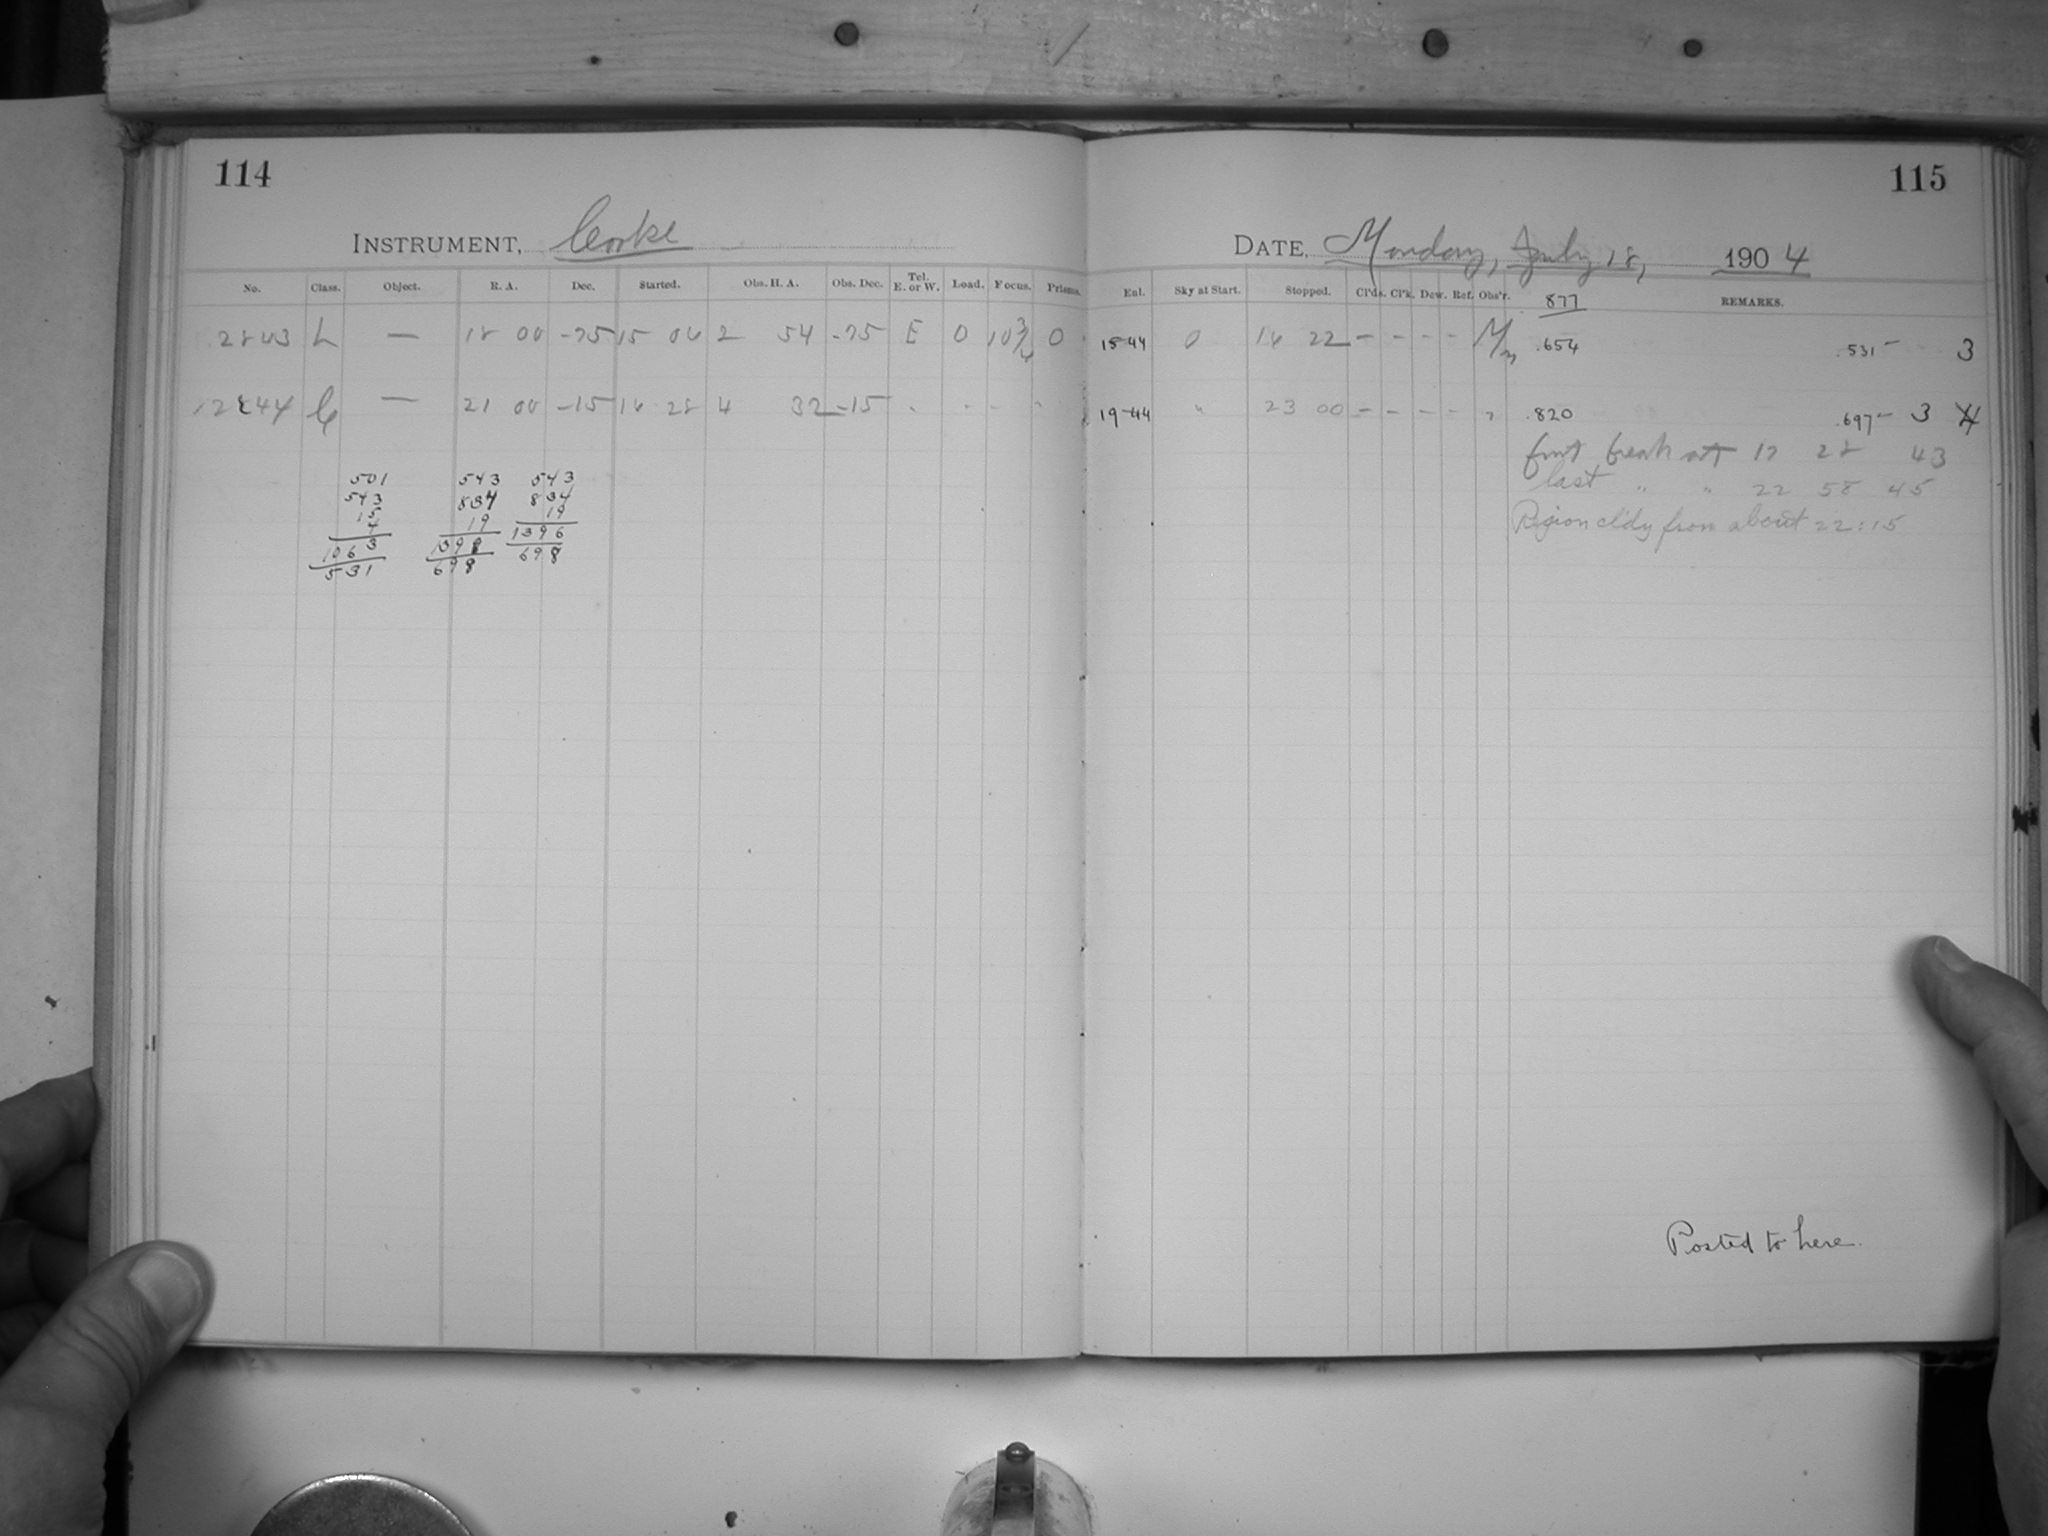 114
115
INSTRUMENT, Cooke
DATE, Monday, July 18, 1904
No. Class. Object. R. A. Dec. Started. Obs. H. A. Obs. Dec. Tel. E. or W. Load. Focus. Prisms. Enl. Sky at Start. Stopped. Cl'ds. Cl'k. Dew. Ref. Obs'r. REMARKS.
877
12843 L — 18 00 -75 15 06 2 54 -75 E 0 10 3/4 0 15 44 0 16 22 — - - - .654 .531 - 3
12844 C — 21 00 -15 16 28 4 32 -15 " - - " 19 44 " 23 00 - - - - " .820 .697 - 3
first break at 17 28 43
last " " 22 58 45
Region cl'dy from about 22:15
501 543 543
543 834 834
15 19 19
4 1398 1396
1063 698 698
531
Posted to here.